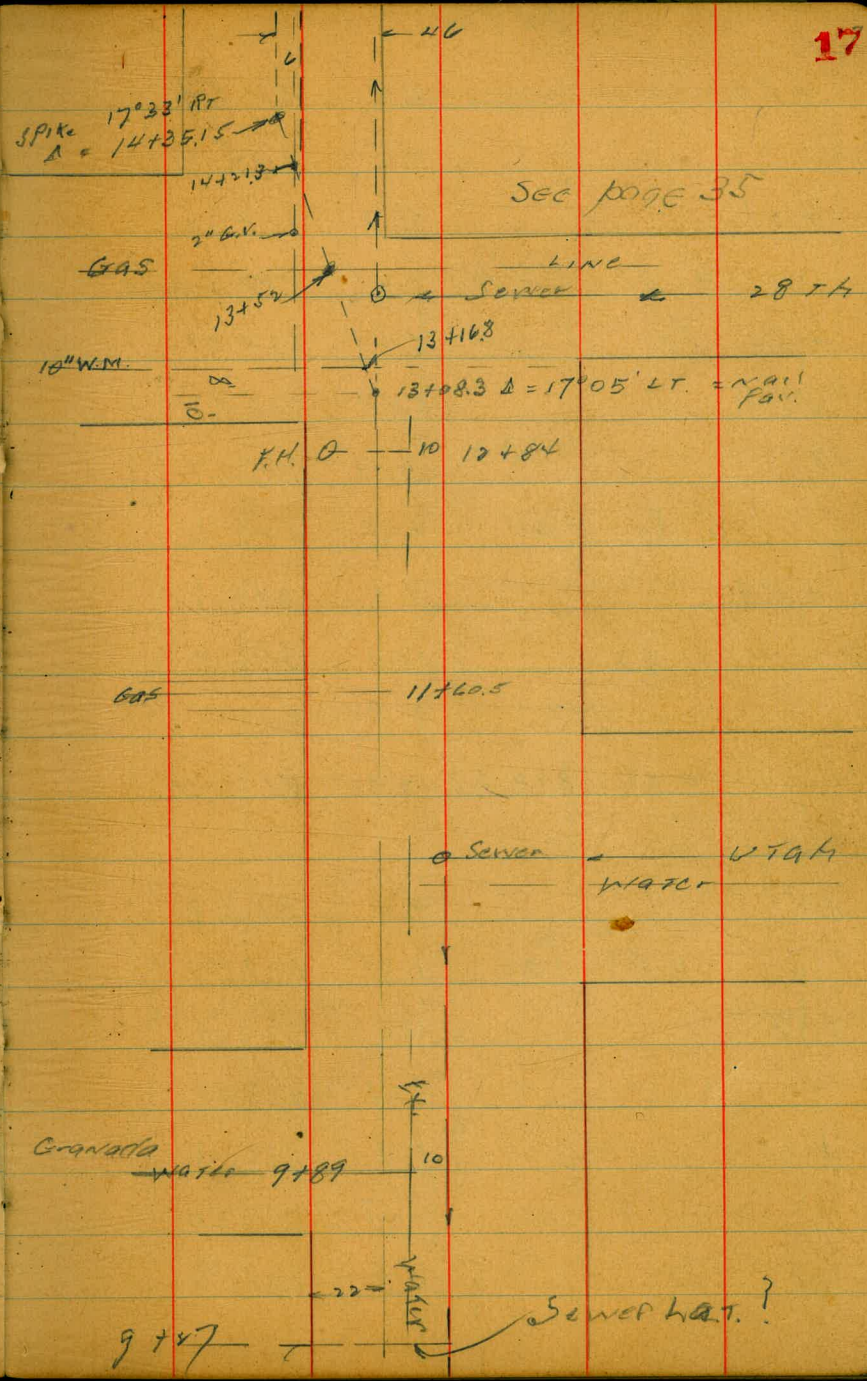 17
46
6
17°33' RT
SPIKE
Δ = 14+35.15
14+21.3
See page 35
2" G.V.
Gas LINE
Sewer 28 Th
13+52
13+16.8
10" W.M.
8
13+08.3 Δ = 17°05' LT. = Nail
Pav.
10-
F.H. 10 12+84
Gas 11+60.5
Sewer UTah
Water
Granada
Water 9+89
10
Water
22
Sewer Lat. ?